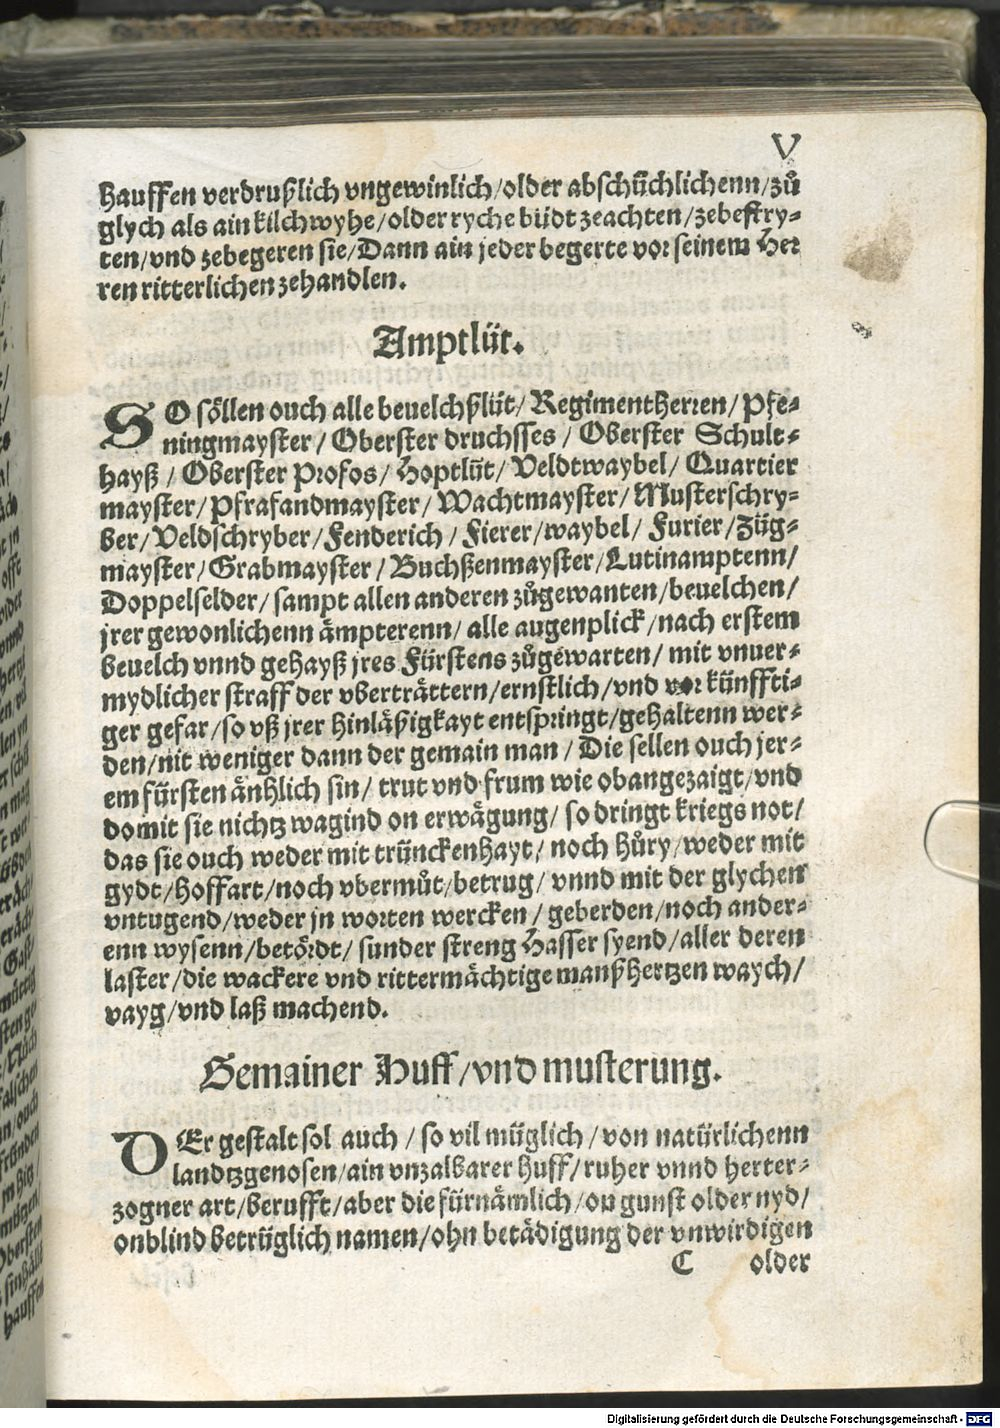 V
hauffen verdrußlich vngewinlich/older abschüchlichenn/zů
glych als ain kilchwyhe/older ryche büdt zeachten/zebestry-
ten/vnd zebegeren sie/Dann ain jeder begerte vor seinem Her
ren ritterlichen zehandlen.
Amptlüt.
SO söllen ouch alle beuelchßlüt/Regimentherren/Pfe-
ningmayster/Oberster druchsses/Oberster Schult-
hayß/Oberster Profos/Hoptlüt/Veldtwaybel/Quartier
mayster/Pfrafandmayster/Wachtmayster/Musterschry-
ber/Veldschryber/Fenderich/Fierer/waybel/Furier/Züg-
mayster/Grabmayster/Buchßenmayster/Lutinamptenn/
Doppelselder/sampt allen anderen zůgewanten/beuelchen/
jrer gewonlichenn ämpterenn/alle augenplick/nach erstem
beuelch vnnd gehayß jres Fürstens zůgewarten/mit vnuer-
mydlicher straff der vberträttern/ernstlich/vnd vor künffti-
ger gefar/so vß jrer hinläßigkayt entspringt/gehaltenn wer-
den/nit weniger dann der gemain man/Die sellen ouch jer-
em fürsten änhlich sin/trut vnd frum wie obangezaigt/vnd
domit sie nichtz wagind on erwägung/so dringt kriegs not/
das sie ouch weder mit trünckenhayt/noch hůry/weder mit
gydt/hoffart/noch vbermůt/betrug/vnnd mit der glychen
vntugend/weder jn worten wercken/geberden/noch ander-
enn wysenn/betördt/sunder streng Hasser syend/aller deren
laster/die wackere vnd rittermächtige manßhertzen waych/
vayg/vnd laß machend.
Gemainer Huff/vnd musterung.
DEr gestalt sol auch/so vil müglich/von natürlichenn
landtzgenosen/ain vnzalbarer huff/ruher vnnd herter-
zogner art/berufft/aber die fürnämlich/on gunst older nyd/
onblind betrüglich namen/ohn betädigung der vnwirdigen
C older
Digitalisierung gefördert durch die Deutsche Forschungsgemeinschaft - DFG